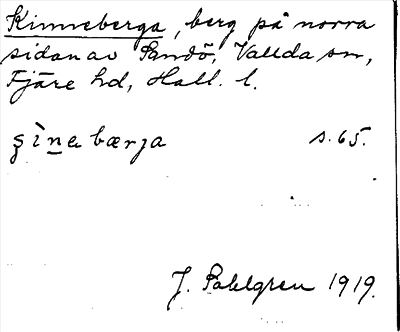 Kinneberga, berg på norra
sidan av Sandö, Vallda sn,
Fjäre hd, Hall. l.
s. 65.
J. Sahlgren 1919.